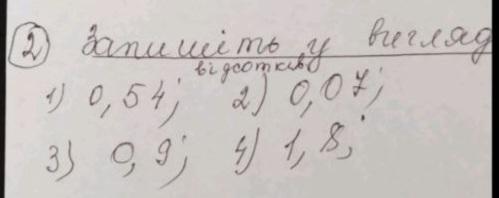 2 Запишіть у вигляд
відсотків
1) 0,54; 2) 0,07;
3) 0,9; 4) 1,8;